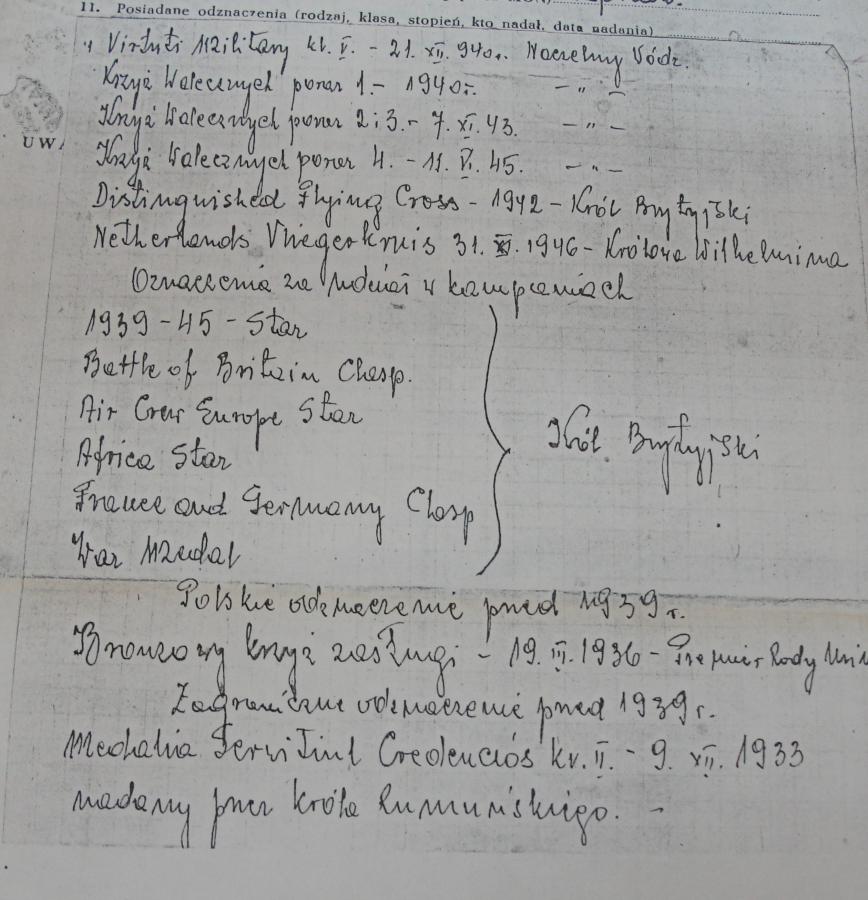 11. Posiadane odznaczenia (rodzaj, klasa, stopień, kto nadał, data nadania)
Virtuti Military kl. V. - 21. XII. 940 r. Naczelny Wódz.
Krzyż Walecznych poraz 1. - 1940 r. - „ -
Krzyż Walecznych poraz 2 i 3. - 7. XI. 43. - „ -
UWA
Krzyż Walecznych poraz 4. - 11. VI. 45. - „ -
Distinguished Flying Cross - 1942 - Król Brytyjski
Netherlands Vliegerkruis 31. XI. 1946 - Królowa Wilhelmina
Oznaczenia za udział w kampaniach
1939-45 - Star
Battle of Britain Clasp.
Air Crew Europe Star
Król Brytyjski
Africa Star
France and Germany Clasp
War Medal
Polskie odznaczenie przed 1939 r.
Bronzowy krzyż zasługi - 19. III. 1936 - Premier Rady
Zagraniczne odznaczenie przed 1939 r.
Medalia Servitiul Credencios kl. II. - 9. XII. 1933
nadany przez króla Rumuńskiego. -